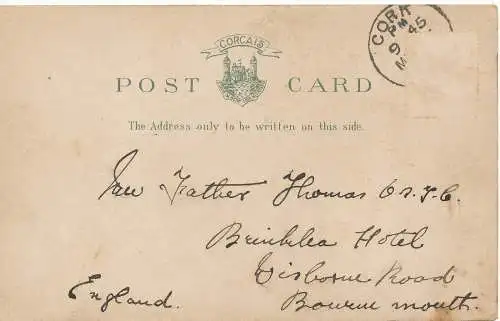 CORCAIG
POST CARD
The Address only to be written on this side.
CORK
PM
9 45
M
Father Thomas O.S.F.C.
Brinklea Hotel
Wisborne Road
Bournemouth.
England.